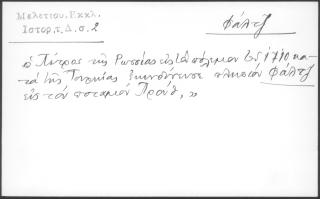 Μελετίου. Εκκλ.
Ιστορ. τ. Δ. σ. 2
Φάλτζ
ὁ Πέτρος τῆς Ρωσσίας εἰς τὸν πόλεμον 1710 κα-
τὰ τῆς Τουρκίας ἐκινδύνευσε πλησίον Φάλτζ
εἰς τὸν ποταμὸν Προῦθ, »